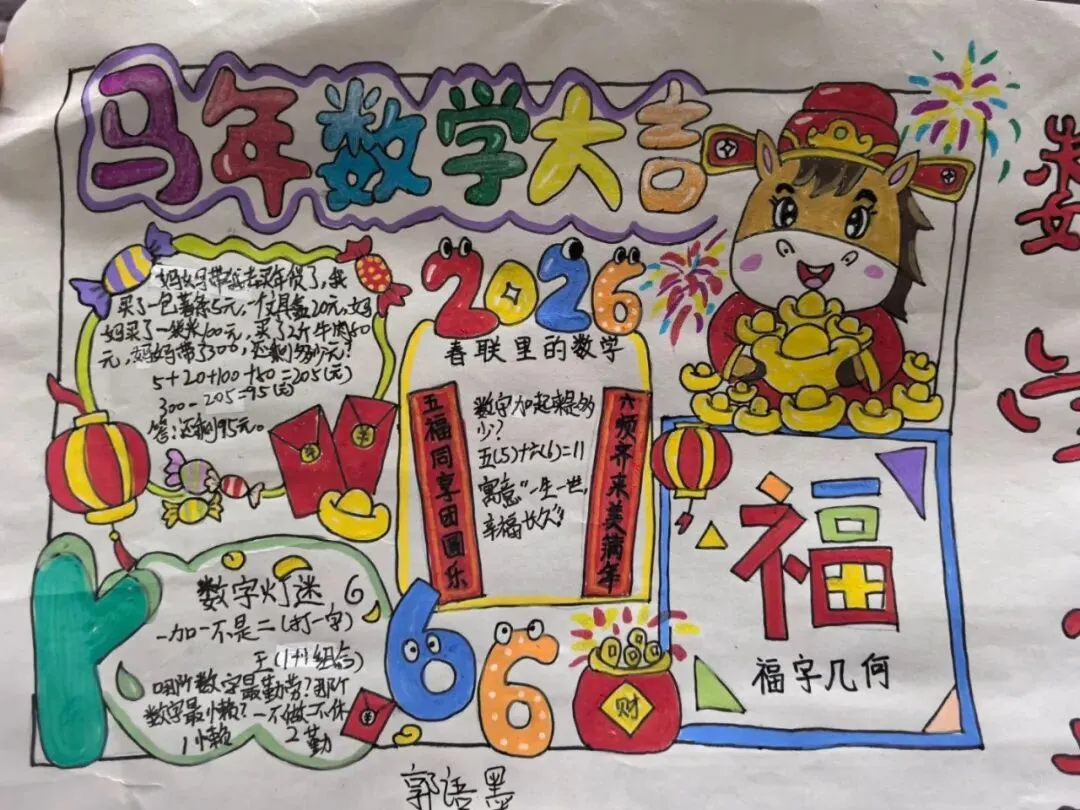 马年数学大吉
2026
妈妈带我去买年货了,我
买了一包薯条5元,一个文具盒20元,妈
妈买了一袋米100元,买了2斤牛肉80
元,妈妈带了300,还剩多少元?
5+20+100+80=205(元)
300-205=95(元)
答:还剩95元。
春联里的数学
五福同享团圆乐
数字加起来是多
少?
五(5)+六(6)=11
寓意"一生一世,
幸福长久"
六顺齐来美满年
福
福字几何
数字灯迷 6
一加一不是二(打一字)
王(
哪阶数字最勤劳?那阶
数字最小懒?一不做二不休
1懒 2勤
66
财
郭语墨
数
学